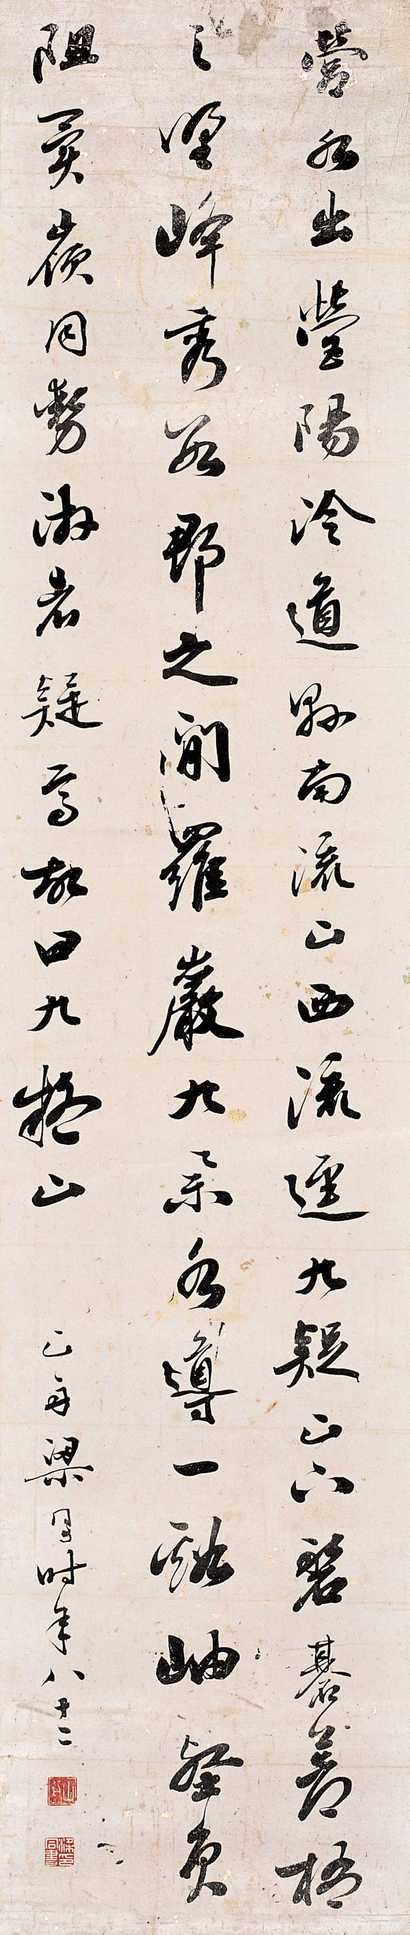 營水出營陽冷道縣南流山西流逕九疑山下磐碁蒼梧
之野峰秀數郡之間羅巖九舉各導一谿岫壑負
阻異嶺同勢游者疑焉故曰九疑山
山舟梁同書時年八十二
山舟
梁同書印